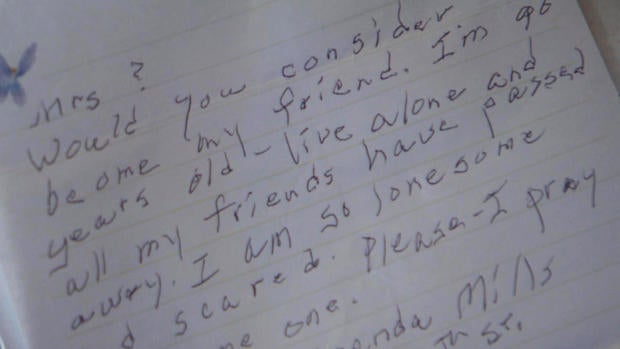 Mrs ?
Would you consider
be ome my friend. I'm 90
years old - live alone and
all my friends have passed
away. I am so lonesome
d scared. Please - I pray
me one.
enda Mills
th st.